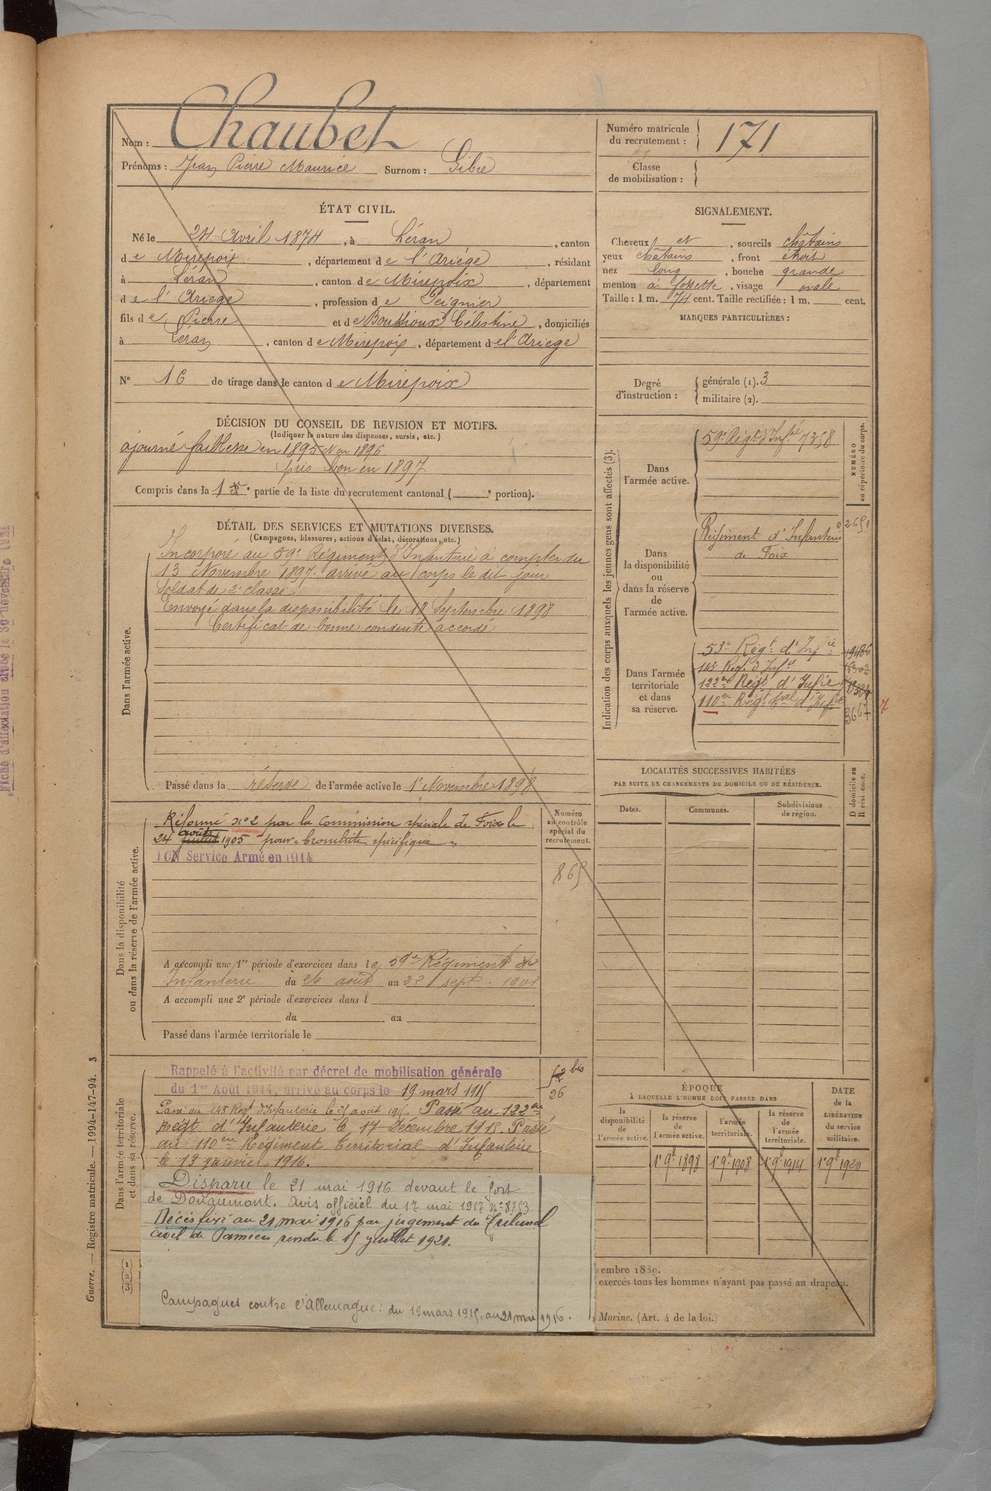 Nom : Chaubet
Prénoms : Jean Pierre Maurice Surnom : Libre
Numéro matricule du recrutement : 171
Classe de mobilisation :
ÉTAT CIVIL.
Né le 24 Avril 1874, à Léran, canton
de Mirepoix, département de l'Ariège, résidant
à Léran, canton de Mirepoix, département
de l'Ariège, profession de Peignier
fils de Pierre et de Célestine, domiciliés
à Léran, canton de Mirepoix, département de l'Ariège
N° 16 de tirage dans le canton de Mirepoix
DÉCISION DU CONSEIL DE REVISION ET MOTIFS.
(Indiquer la nature des dispenses, sursis, etc.)
ajourné faiblesse en 1895 et en 1896
pris bon en 1897
Compris dans la 1re partie de la liste du recrutement cantonal ( e portion).
DÉTAIL DES SERVICES ET MUTATIONS DIVERSES.
(Campagnes, blessures, actions d'éclat, décorations, etc.)
Dans l'armée active.
Incorporé au 59e Régiment d'Infanterie à compter du
13 Novembre 1897. arrivé au corps le dit jour
Soldat de 2e classe
Envoyé dans la disponibilité le 18 Septembre 1898
Certificat de bonne conduite accordé
Passé dans la réserve de l'armée active le 1er Novembre 1898
Dans la disponibilité ou dans la réserve de l'armée active.
Numéro au contrôle spécial du recrutement.
Réformé n°2 par la Commission spéciale de Foix le
24 août 1905 pour bronchite spécifique
BON Service Armé en 1914
865
A accompli une 1re période d'exercices dans le 59e Régiment d'
Infanterie du 26 août au 22 sept. 1901
A accompli une 2e période d'exercices dans l
du au
Passé dans l'armée territoriale le
Dans l'armée territoriale et dans sa réserve.
Rappelé à l'activité par décret de mobilisation générale
du 1er Août 1914, arrivé au corps le 19 mars 1915
bis
26
Passé au 143 Régt d'Infanterie le août 1915. Passé au 122eme
Régt. d'Infanterie le 17 Décembre 1915. Passé
au 110em Régiment Territorial d'Infanterie
le 13 janvier 1916.
Disparu le 21 mai 1916 devant le fort
de Douaumont. Avis officiel du 17 mai 1917 n°
Décès fixé au 21 mai 1916 par jugement du Tribunal
civil de Pamiers rendu le 15 juillet 1920.
Campagnes contre l'Allemagne : du 19 mars 1915 au 21 mai 1916.
SIGNALEMENT.
Cheveux et, sourcils châtains
yeux châtains, front étroit
nez long, bouche grande
menton à fossette, visage ovale
Taille : 1 m. 71 cent. Taille rectifiée : 1 m. cent.
MARQUES PARTICULIÈRES :
Degré d'instruction : générale (1). 3
militaire (2).
Indication des corps auxquels les jeunes gens sont affectés (3).
NUMÉRO au répertoire du corps.
Dans l'armée active.
59e Régt d'Infie 7358
Dans la disponibilité ou dans la réserve de l'armée active.
Régiment d'Infanterie
de Foix
Dans l'armée territoriale et dans sa réserve.
53e Regt d'Infie
143 Regt d'Infie
122eme Régt d'Infie
110em Régt tal d'Infie
LOCALITÉS SUCCESSIVES HABITÉES
PAR SUITE DE CHANGEMENTS DE DOMICILE OU DE RÉSIDENCE.
D domicile ou R résidence.
Dates. Communes. Subdivisions de région.
ÉPOQUE
À LAQUELLE L'HOMME DOIT PASSER DANS
DATE de la LIBÉRATION du service militaire.
la disponibilité de l'armée active. la réserve de l'armée active. l'armée territoriale. la réserve de l'armée territoriale.
1er 9bre 1898 1er 9bre 1908 1er 9bre 1914 1er 9bre 1920
embre 1889.
exercés tous les hommes n'ayant pas passé au drapeau.
Marine. (Art. 4 de la loi.)
Guerre. — Registre matricule. — 1994-147-94. 3